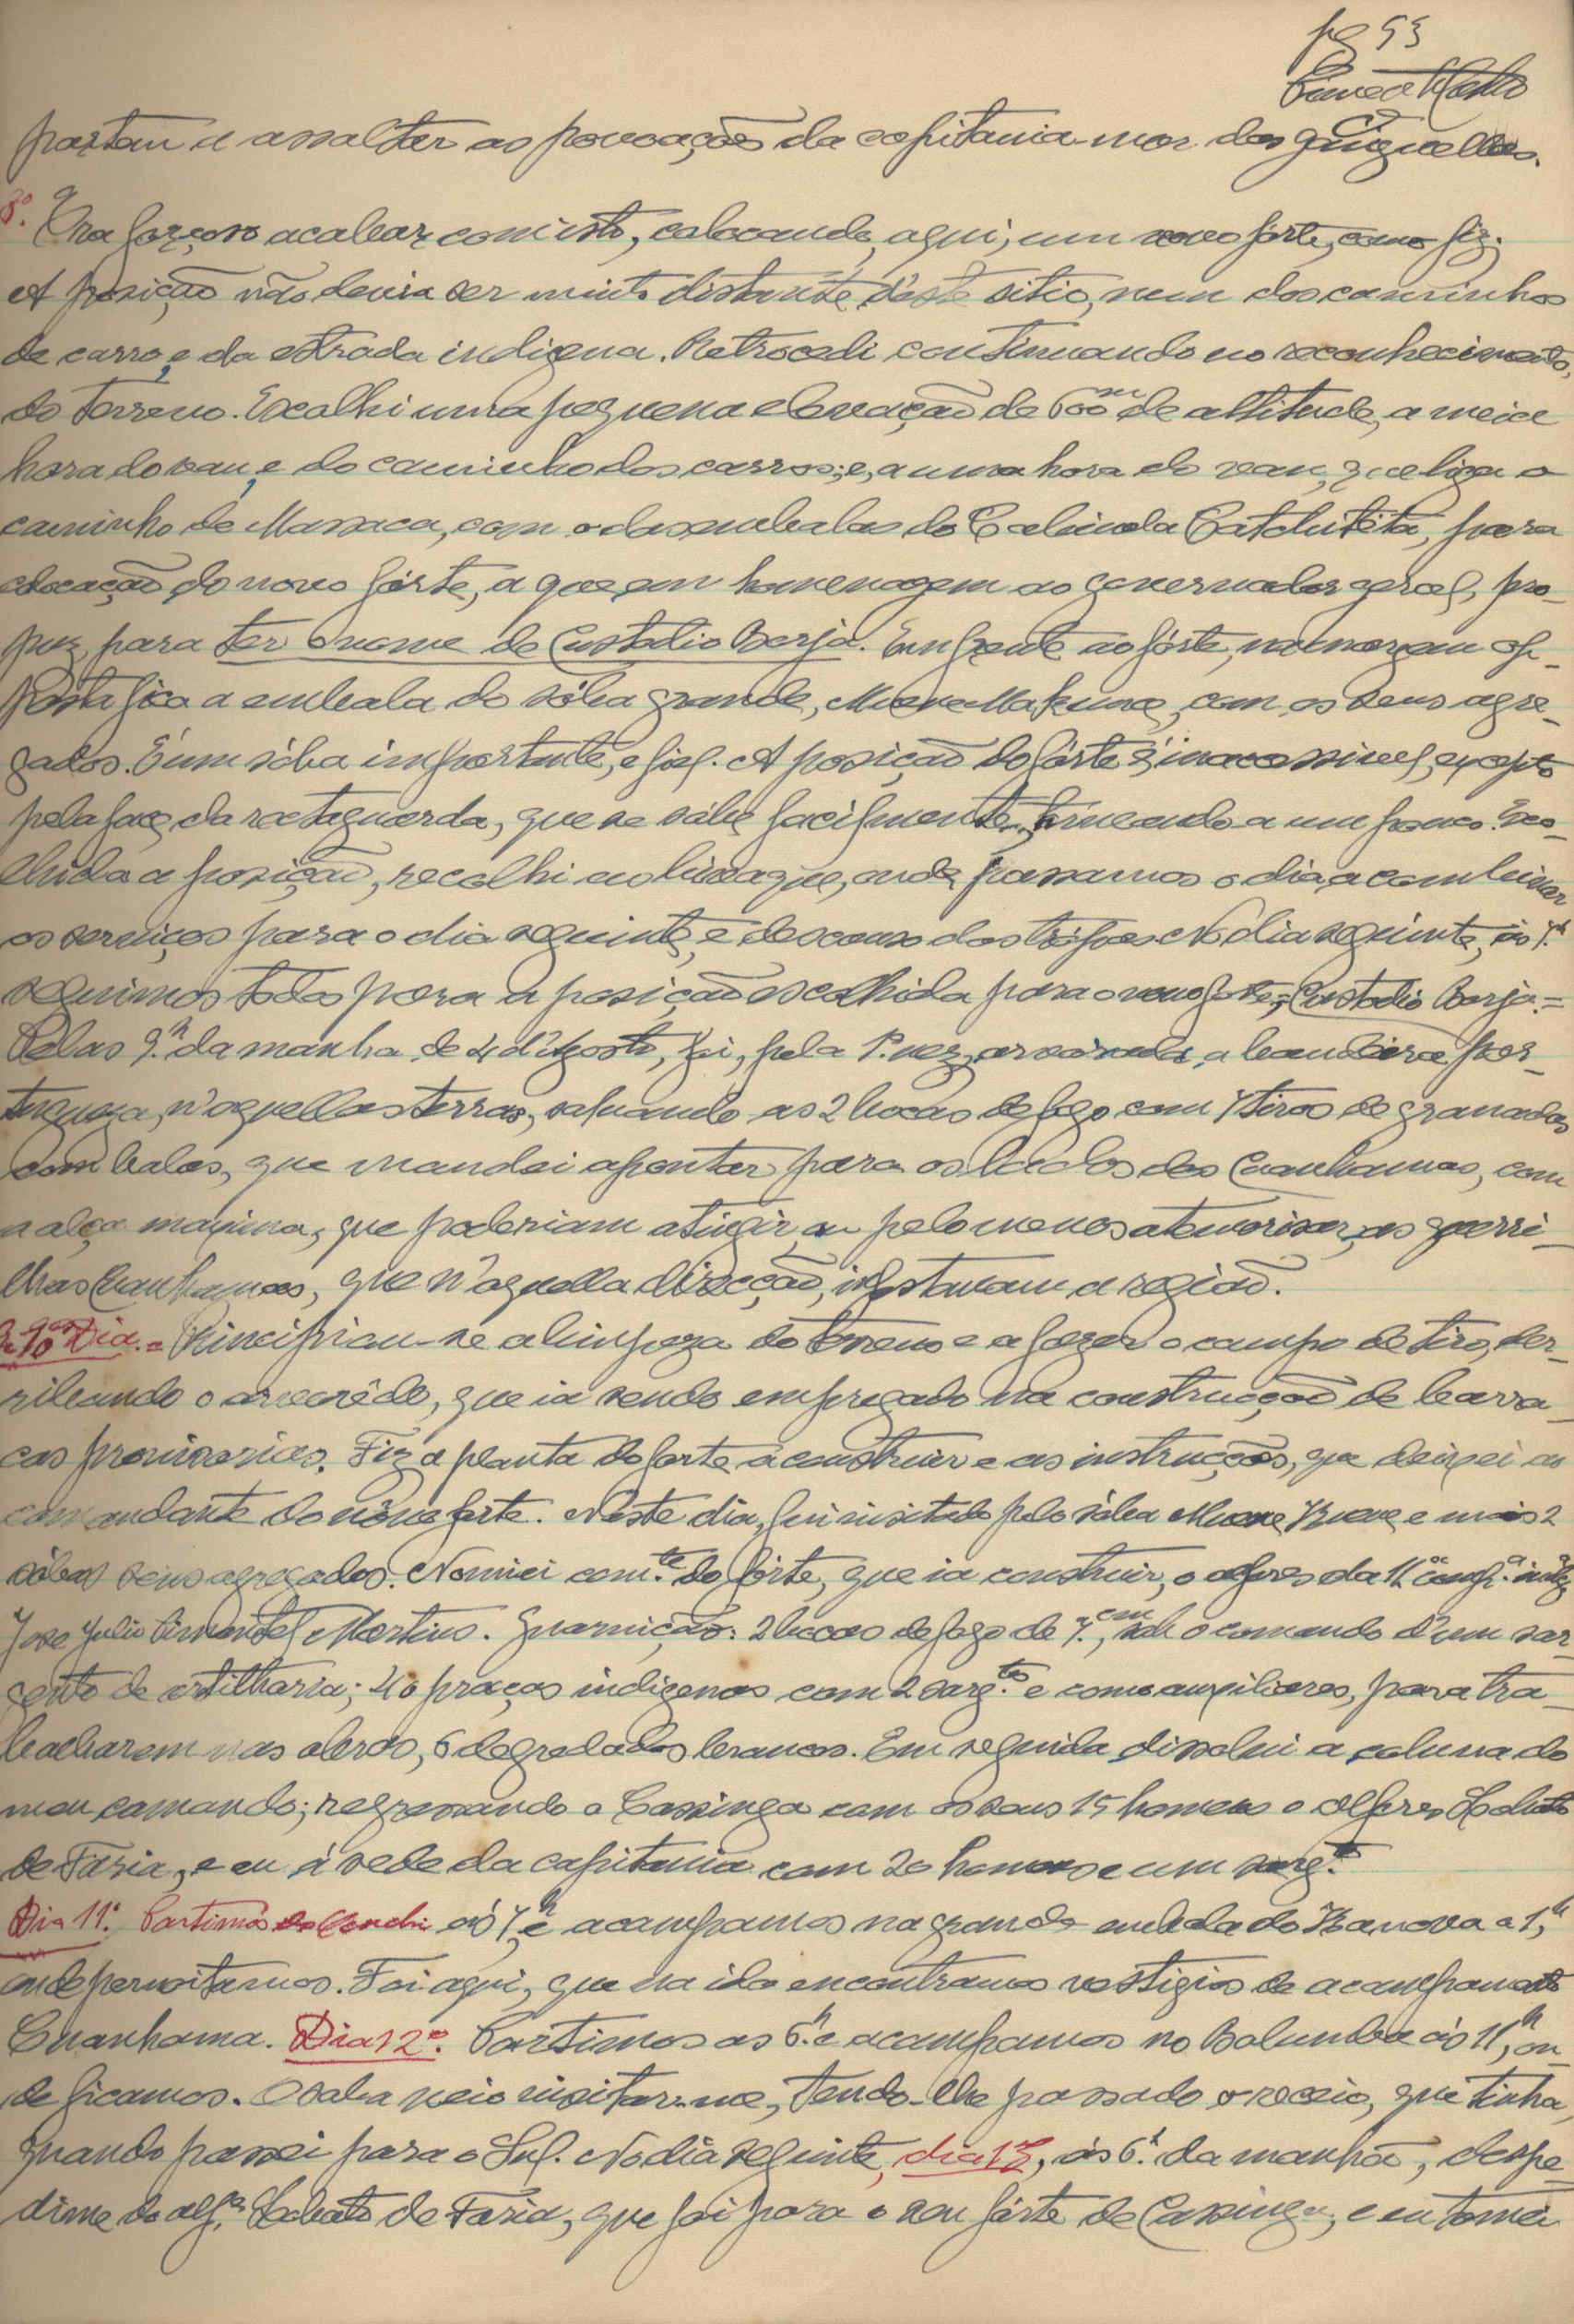 pg 53
partem a assaltar as povoações da capitania-mor dos ganguellas.
8º. Era forçoso acabar com isto, colocando, aqui, um novo forte, como fiz.
A posição não devia ser muito distante d'este sitio, nem dos caminhos
de carro, e da estrada indigena. Retrocedi continuando no reconhecimento,
do terreno. Escolhi uma pequena elevação de 600m de altitude, a meia
hora do vau, e do caminho dos carros; e, a uma hora do vau, que liga o
caminho de Massaca, com o das embalas do Cabinda Catchitéta, para
colocação do novo fórte, a que em homenagem ao governador geral, pro-
puz, para ter o nome de Custodio Borja. Em frente ao fórte, na margem op-
posta fica a embala do sóba grande, Muene Makuna, com os seus agre-
gados. É um sóba importante, e fiel. A posição do fórte é inacessivel, excepto
pela face da rectaguarda, que se sobe facilmente, torneando-a um pouco. Esco-
lhida a posição, recolhi ao bivaque, onde passamos o dia, a combinar
os serviços para o dia seguinte, e descanso das trópas. No dia seguinte, ás 7.h
seguimos todos para a posição escolhida para o novo forte, = Custodio Borja. =
Pelas 9.h da manhã, de 4 d'Agosto, foi, pela 1ª vez, arvorada, a bandeira por-
tugueza, n'aquellas terras, salvando as 2 bocas de fogo com 7 tiros de granadas
com balas, que mandei apontar para os lados dos Cuanhamas, com
a alça maxima, que poderiam atingir, ou pelo menos atemorisar, as guerri-
lhas Cuanhamas, que n'aquella direcção, infestavam a região.
10º Dia. = Principiou-se a limpeza do terreno e a fazer o campo de tiro, der-
ribando o arvorêdo, que ia sendo empregado na construcção de barra-
cas provisorias. Fiz a planta do forte a construir e as instrucções, que deixei ao
comandante do nóvo forte. N'este dia, fui visitado pelo sóba Muene e mais 2
sóbas seus agregados. Nomiei com.te do fórte, que ia construir, o alferes da 11ª comp.ª
Jose Julio Pimentel Martins. Guarnição: 2 bocas de fogo de 7.cm, sob o comando d'um sar-
gento de artilharia; 40 praças indigenas com 2 sarg.tos e como auxiliares, para tra-
balharem nas obras, 6 degredados brancos. Em seguida, dissolvi a coluna do
meu comando; regressando a Cassinga com os seus 15 homens o alferes Lobato
de Faria, e eu á sede da capitania com 20 homens e um sarg.to
Dia 11º. Partimos do ás 7h, e acampamos na grande embala do Kanova a 1,h
onde pernoitamos. Foi aqui, que na ida encontramos vestigios de acampamento
Cuanhama. Dia 12º. Partimos as 6.h e acampamos no Bolumba ás 11,h on-
de ficamos. O soba veio visitar-me, tendo-lhe passado o receio, que tinha,
quando passei para o Sul. No dia seguinte, dia 13, ás 6.h da manhã, despe-
dime do alf.es Lobato de Faria, que foi para o seu fórte de Cassinga, e eu tomei